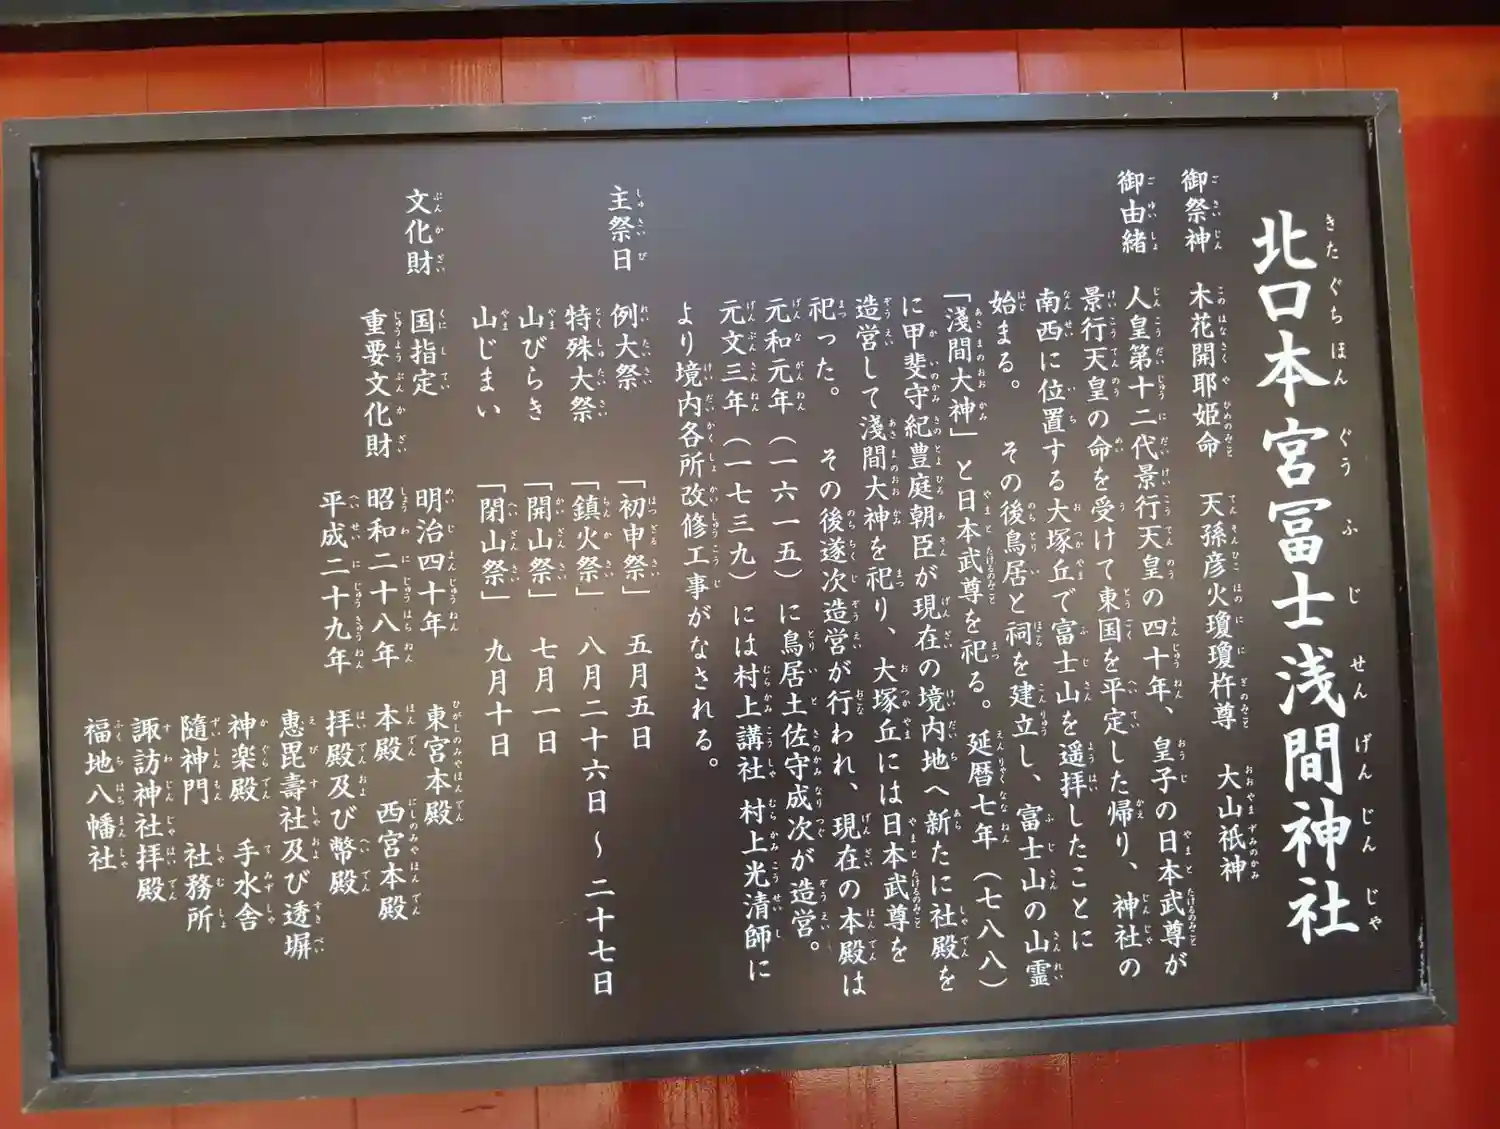 北口本宮冨士浅間神社
御祭神 木花開耶姫命 天孫彦火瓊瓊杵尊 大山祇神
御由緒 人皇第十二代景行天皇の四十年、皇子の日本武尊が
景行天皇の命を受けて東国を平定した帰り、神社の
南西に位置する大塚丘で富士山を遥拝したことに
始まる。 その後鳥居と祠を建立し、富士山の山霊
「淺間大神」と日本武尊を祀る。延暦七年(七八八)
に甲斐守紀豊庭朝臣が現在の境内地へ新たに社殿を
造営して淺間大神を祀り、大塚丘には日本武尊を
祀った。 その後遂次造営が行われ、現在の本殿は
元和元年(一六一五)に鳥居土佐守成次が造営。
元文三年(一七三九)には村上講社 村上光清師に
より境内各所改修工事がなされる。
主祭日 例大祭 「初申祭」 五月五日
特殊大祭 「鎮火祭」 八月二十六日~二十七日
山びらき 「開山祭」 七月一日
山じまい 「閉山祭」 九月十日
文化財 国指定 明治四十年 東宮本殿
重要文化財 昭和二十八年 本殿 西宮本殿
平成二十九年 拝殿及び幣殿
恵毘壽社及び透塀
神楽殿 手水舎
隨神門 社務所
諏訪神社拝殿
福地八幡社